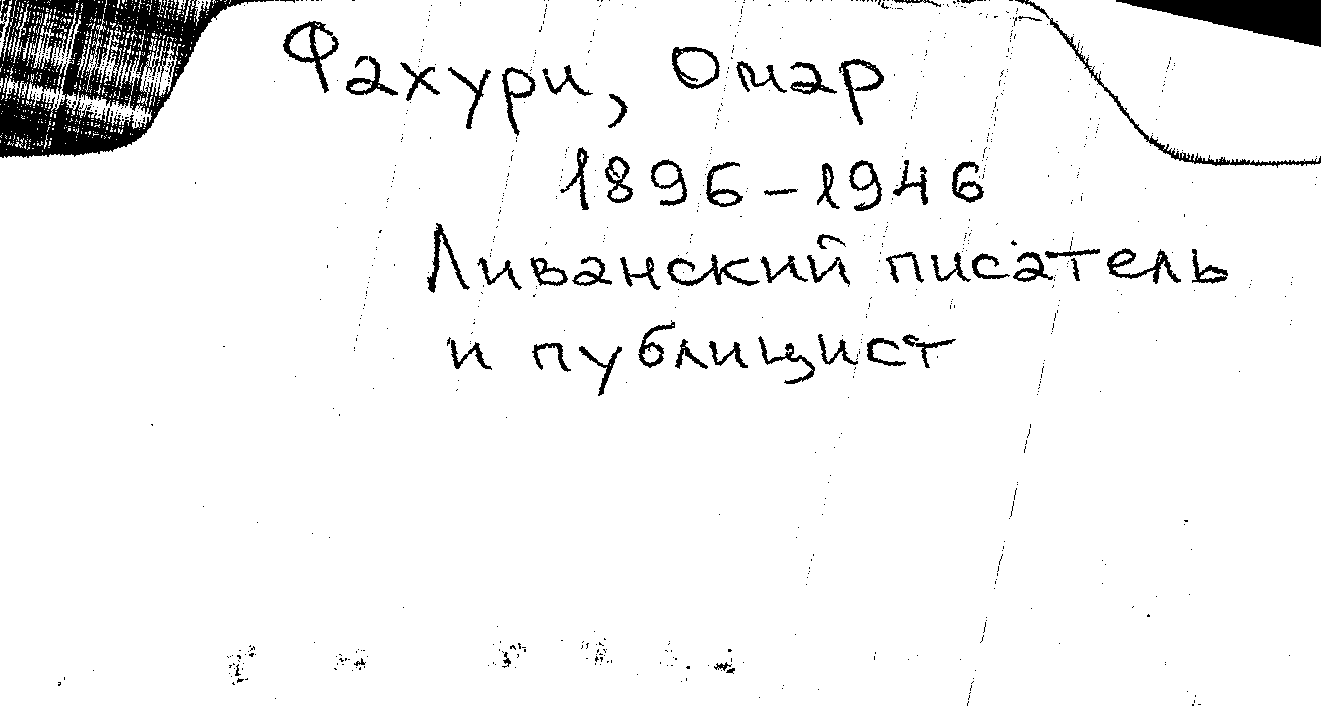 Фахури, Омар
1896-1946
Ливанский писатель
и публицист